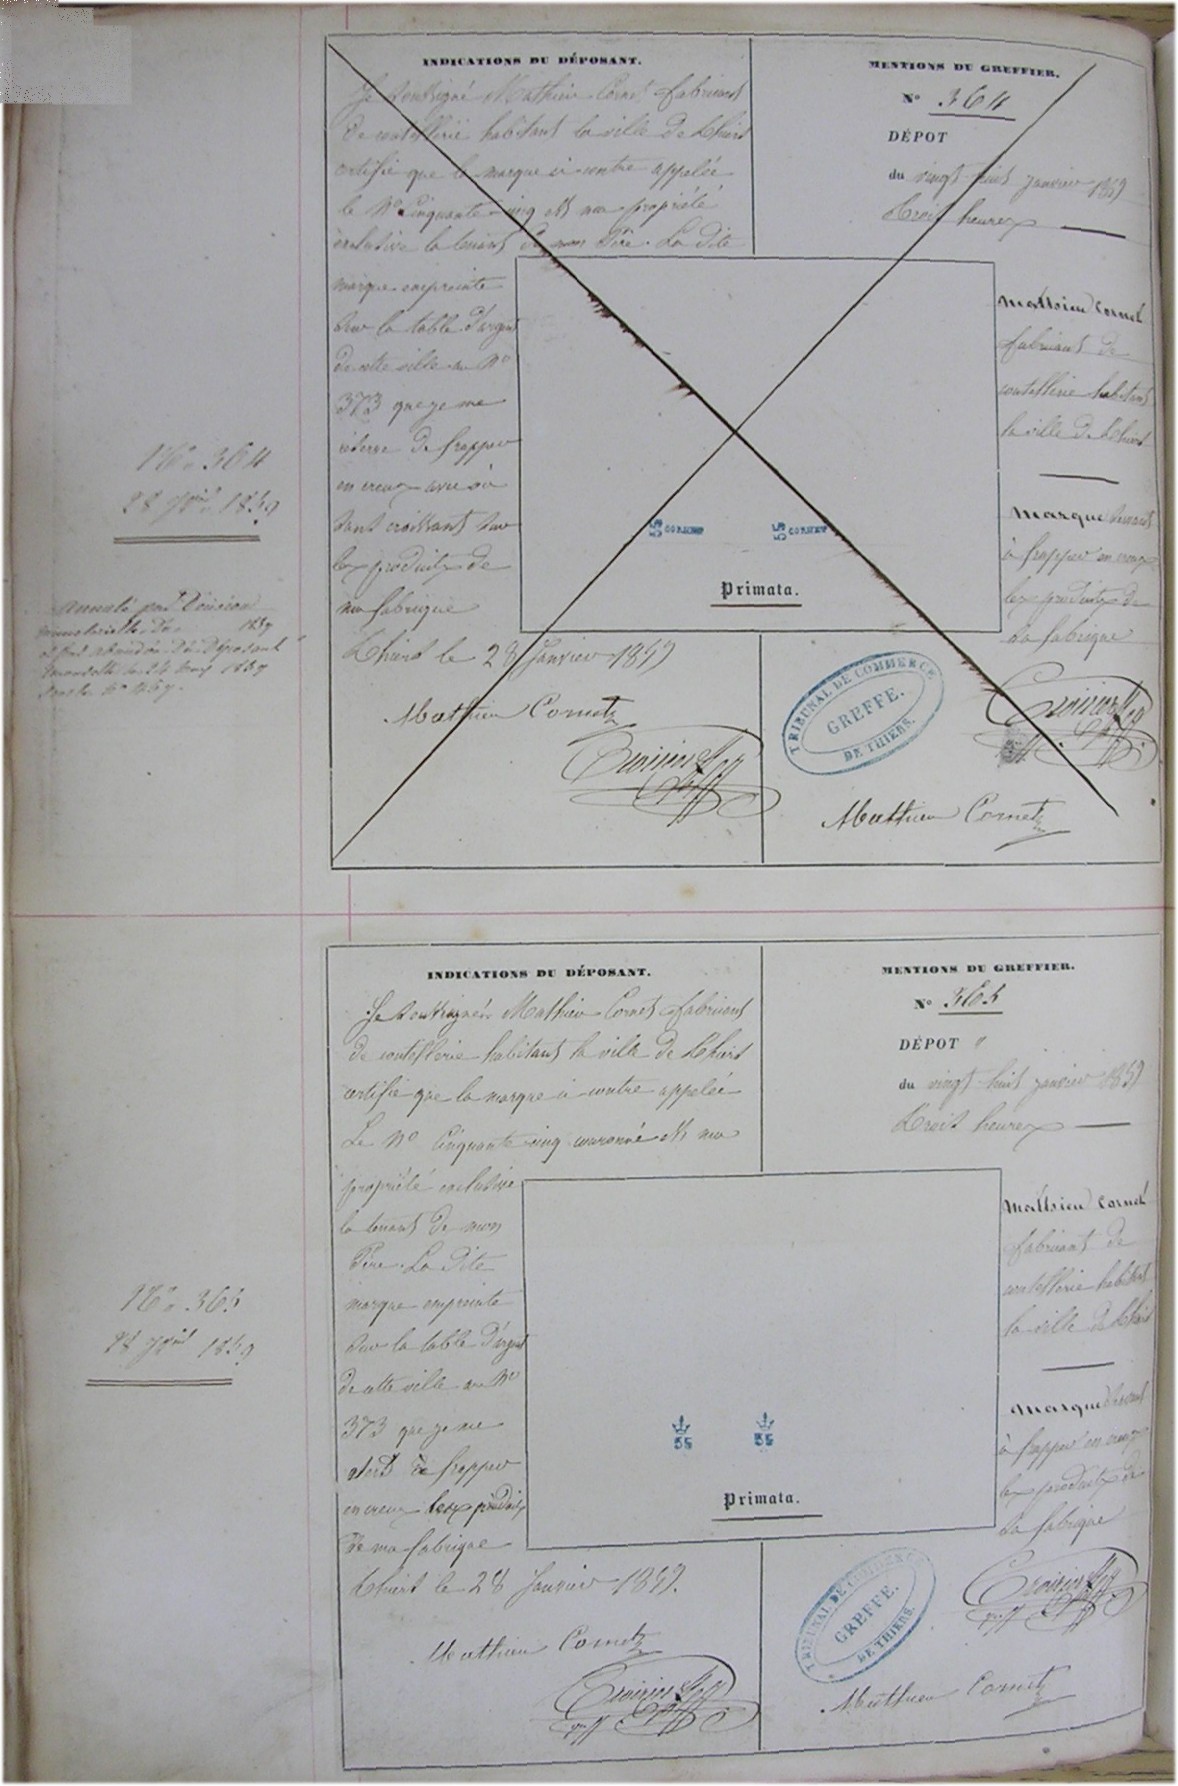 INDICATIONS DU DÉPOSANT.
Je soussigné Mathieu Cornet fabricant
de coutellerie habitant la ville de Thiers
certifie que la marque ci contre appelée
le No Cinquante cinq est ma propriété
exclusive la tenant de mon Père. La dite
marque empreinte
sur la table d'argent
de cette ville au No
373 que je me
réserve de frapper
en creux avec ou
sans croissant sur
les produits de
ma fabrique
Thiers le 28 Janvier 1859
Mathieu Cornet
MENTIONS DU GREFFIER.
No 364
DÉPOT
du vingt huit janvier 1859
Trois heures
Mathieu Cornet
fabricant de
coutellerie habitant
la ville de Thiers
Marque devant
à frapper en creux
les produits de
sa fabrique
55 CORNET
55 CORNET
Primata.
TRIBUNAL DE COMMERCE
GREFFE.
DE THIERS.
Mathieu Cornet
No 364
28 Jer 1859
Annulé par Décision
ministérielle du 1859
et par abandon du Déposant
le 24 1859
INDICATIONS DU DÉPOSANT.
Je soussigné Mathieu Cornet fabricant
de coutellerie habitant la ville de Thiers
certifie que la marque ci contre appelée
Le No Cinquante cinq couronné est ma
propriété exclusive
la tenant de mon
Père. La dite
marque empreinte
sur la table d'argent
de cette ville au No
373 que je me
de frapper
en creux les produits
de ma fabrique
Thiers le 28 Janvier 1859.
Mathieu Cornet
MENTIONS DU GREFFIER.
No 365
DÉPOT
du vingt huit janvier 1859
Trois heures
Mathieu Cornet
fabricant de
coutellerie habitant
la ville de Thiers
Marque devant
à frapper en creux
les produits de
sa fabrique
55
55
Primata.
TRIBUNAL DE COMMERCE
GREFFE.
DE THIERS.
Mathieu Cornet
No 365
28 Jer 1859